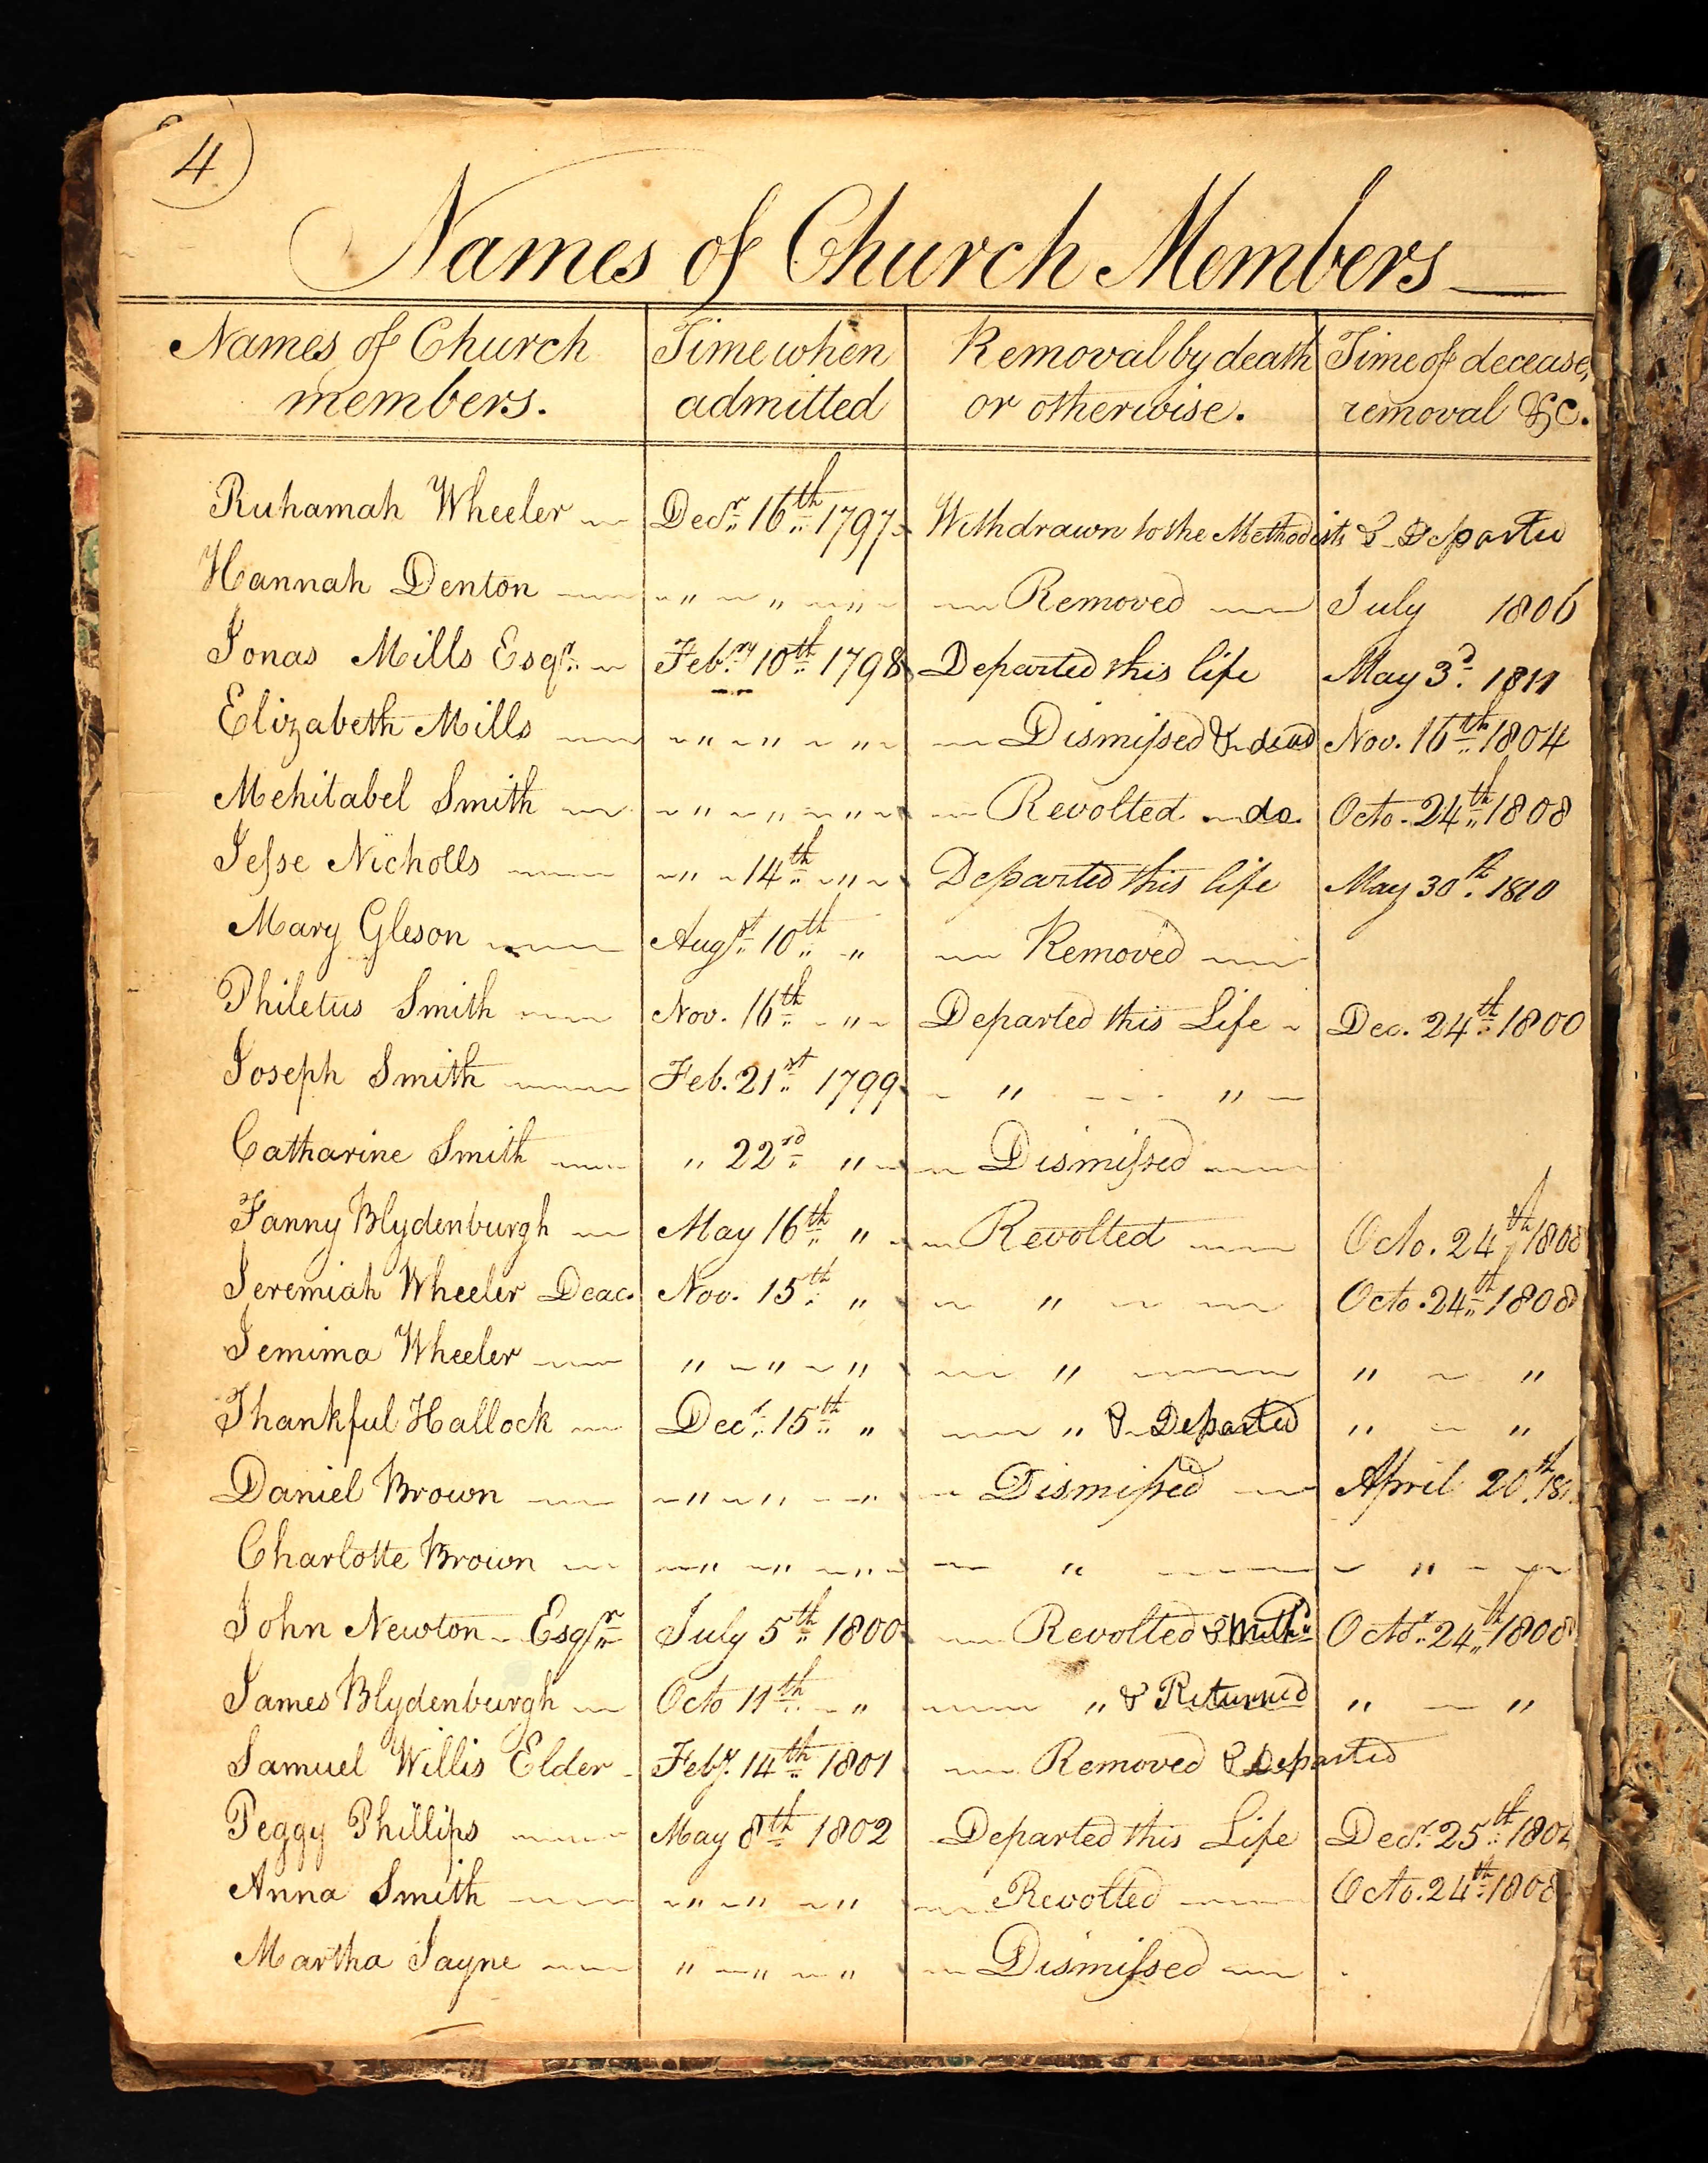 4
Names of Church Members
Names of Church members. Time when admitted Removal by death or otherwise. Time of decease, removal &c.
Ruhamah Wheeler Decr. 16th 1797 Withdrawn to the Methodists & Departed
Hannah Denton " " " Removed July 1806
Jonas Mills Esqr. Febry 10th 1798 Departed this life May 3d 1811
Elizabeth Mills " " " Dismissed & dead Nov. 16th 1804
Mehitabel Smith " " " Revolted do. Octo. 24th 1808
Jesse Nicholls " 14th " Departed this life May 30th 1810
Mary Gleson Augst 10th " Removed
Philetus Smith Nov. 16th " Departed this Life Dec. 24th 1800
Joseph Smith Feb. 21st 1799 " "
Catharine Smith " 22nd " Dismissed
Fanny Blydenburgh May 16th " Revolted Octo. 24th 1808
Jeremiah Wheeler Deac. Nov. 15th " " Octo. 24th 1808
Jemima Wheeler " " " " " "
Thankful Hallock Decr. 15th " " & Departed " "
Daniel Brown " " " Dismissed April 20th
Charlotte Brown " " " " "
John Newton Esqr July 5th 1800 Revolted & Octor. 24th 1808
James Blydenburgh Octo 11th " " & Returned " "
Samuel Willis Elder Feby. 14th 1801 Removed & Departed
Peggy Phillips May 8th 1802 Departed this Life Decr. 25th
Anna Smith " " " Revolted Octo. 24th 1808
Martha Jayne " " " Dismissed